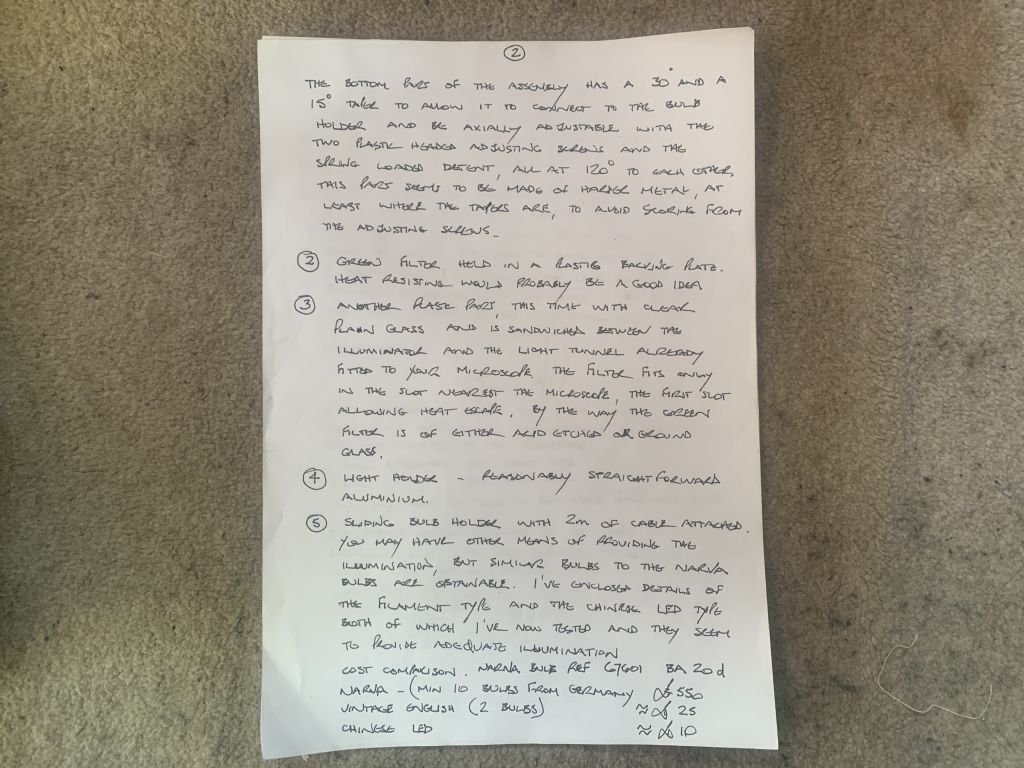 2
THE BOTTOM PART OF THE ASSEMBLY HAS A 30° AND A
15° TAPER TO ALLOW IT TO CONNECT TO THE BULB
HOLDER AND BE AXIALLY ADJUSTABLE WITH THE
TWO PLASTIC HEADED ADJUSTING SCREWS AND THE
SPRING LOADED DETENT, ALL AT 120° TO EACH OTHER,
THIS PART SEEMS TO BE MADE OF HARDER METAL, AT
LEAST WHERE THE TAPERS ARE, TO AVOID SCORING FROM
THE ADJUSTING SCREWS.
2 GREEN FILTER HELD IN A PLASTIC BACKING PLATE.
HEAT RESISTING WOULD PROBABLY BE A GOOD IDEA
3 ANOTHER PLASTIC PART, THIS TIME WITH CLEAR
PLAIN GLASS AND IS SANDWICHED BETWEEN THE
ILLUMINATOR AND THE LIGHT TUNNEL ALREADY
FITTED TO YOUR MICROSCOPE. THE FILTER FITS ONLY
IN THE SLOT NEAREST THE MICROSCOPE, THE FIRST SLOT
ALLOWING HEAT ESCAPE. BY THE WAY THE GREEN
FILTER IS OF EITHER ACID ETCHED OR GROUND
GLASS.
4 LIGHT HOLDER - REASONABLY STRAIGHTFORWARD
ALUMINIUM.
5 SLIDING BULB HOLDER WITH 2m OF CABLE ATTACHED.
YOU MAY HAVE OTHER MEANS OF PROVIDING THE
ILLUMINATION, BUT SIMILAR BULBS TO THE NARVA
BULBS ARE OBTAINABLE. I'VE ENCLOSED DETAILS OF
THE FILAMENT TYPE AND THE CHINESE LED TYPE
BOTH OF WHICH I'VE NOW TESTED AND THEY SEEM
TO PROVIDE ADEQUATE ILLUMINATION
COST COMPARISON. NARVA BULB REF 67601 BA 20d
NARVA - (MIN 10 BULBS FROM GERMANY £ 550
VINTAGE ENGLISH (2 BULBS) ≈ £ 25
CHINESE LED ≈ £ 10